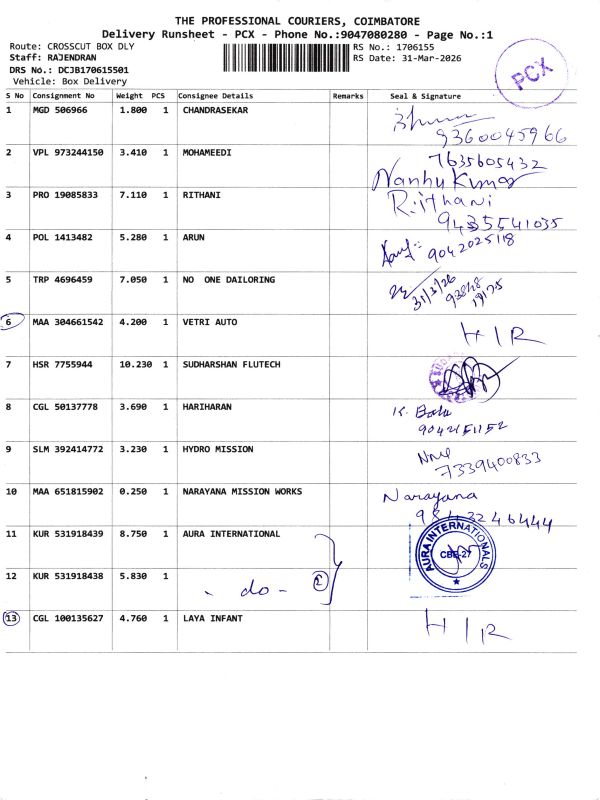 THE PROFESSIONAL COURIERS, COIMBATORE
Delivery Runsheet - PCX - Phone No.:9047080280 - Page No.:1
Route: CROSSCUT BOX DLY
RS No.: 1706155
Staff: RAJENDRAN
RS Date: 31-Mar-2026
DRS No.: DCJB170615501
Vehicle: Box Delivery
PCX
S No Consignment No Weight PCS Consignee Details Remarks Seal & Signature
1 MGD 506966 1.800 1 CHANDRASEKAR
9360045966
2 VPL 973244150 3.410 1 MOHAMEEDI 7635605432
Nanhu Kumar
3 PRO 19085833 7.110 1 RITHANI Rithani
9435541035
4 POL 1413482 5.280 1 ARUN 9042025118
5 TRP 4696459 7.050 1 NO ONE DAILORING 31/3/26
6 MAA 304661542 4.200 1 VETRI AUTO H/R
7 HSR 7755944 10.230 1 SUDHARSHAN FLUTECH
8 CGL 50137778 3.690 1 HARIHARAN K.
9 SLM 392414772 3.230 1 HYDRO MISSION
7339400833
10 MAA 651815902 0.250 1 NARAYANA MISSION WORKS Narayana
11 KUR 531918439 8.750 1 AURA INTERNATIONAL
AURA INTERNATIONALS
CBE-27
12 KUR 531918438 5.830 1 - do - 2
13 CGL 100135627 4.760 1 LAYA INFANT H/R